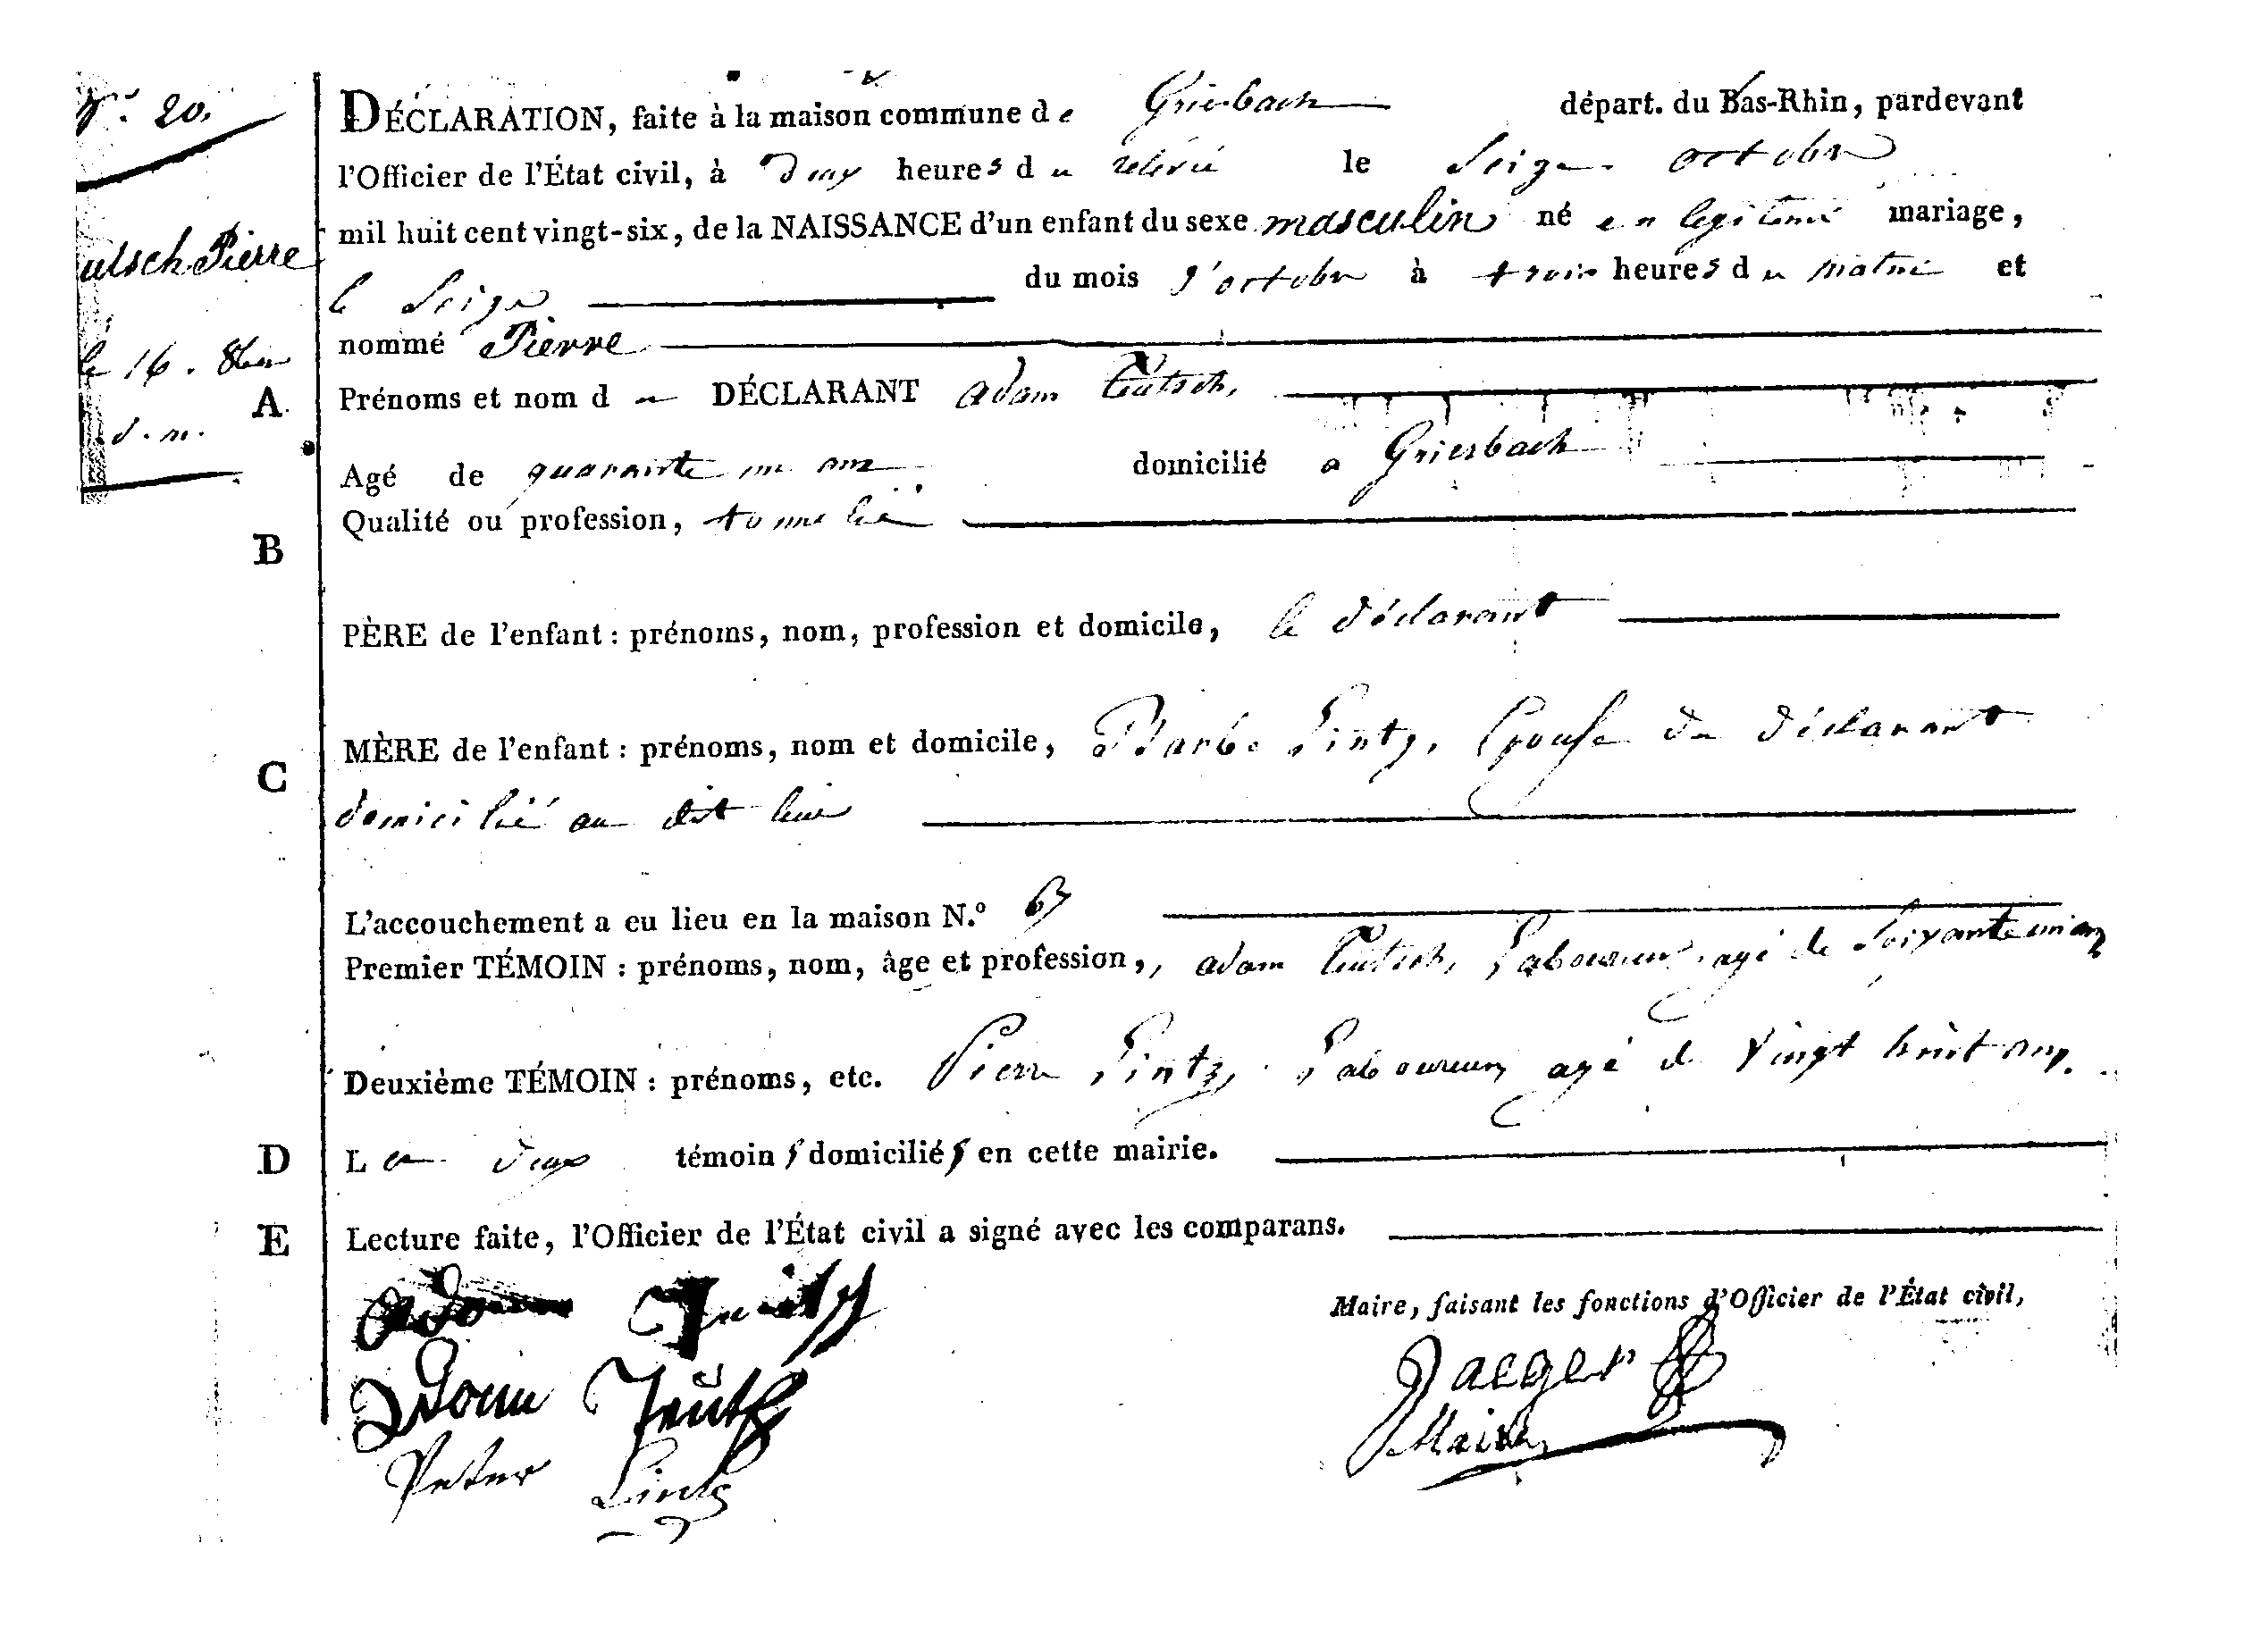 N.º 20.
DÉCLARATION, faite à la maison commune de Griesbach départ. du Bas-Rhin, pardevant
l'Officier de l'État civil, à deux heures du relevé le Seize octobre
mil huit cent vingt-six, de la NAISSANCE d'un enfant du sexe masculin né en legitime mariage,
utsch Pierre
le Seize du mois d'octobre à trois heures du matin et
nommé Pierre
le 16. 8bre
A Prénoms et nom du DÉCLARANT adam Teutsch,
d. m.
Agé de quarante un ans domicilié a Griesbach
Qualité ou profession, tonnelié
B
PÈRE de l'enfant : prénoms, nom, profession et domicile, le déclarant
MÈRE de l'enfant : prénoms, nom et domicile, Barbe Lintz, Epouse du déclarant
C
domicilié au dit lieu
L'accouchement a eu lieu en la maison N.º
Premier TÉMOIN : prénoms, nom, âge et profession, adam Teutsch, Laboureur, agé de Soixante un an
Deuxième TÉMOIN : prénoms, etc. Pierre Lintz, Laboureur, agé de vingt huit ans.
D Les deux témoins domiciliés en cette mairie.
E Lecture faite, l'Officier de l'État civil a signé avec les comparans.
Maire, faisant les fonctions d'Officier de l'État civil,
Adam
Adam Teutsch
Jaeger
Maire
Peter Lintz